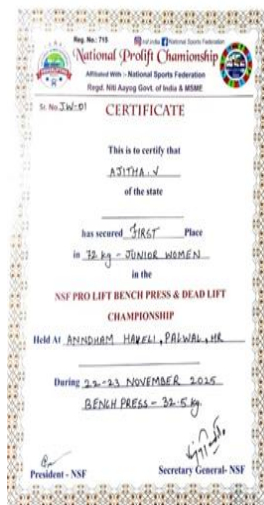 Reg. No.: 715 nsf.india National Sports Federation
National Prolift Chamionship
Affiliated With :- National Sports Federation
Regd. Niti Aayog Govt. of India & MSME
Sr. No. JW-01
CERTIFICATE
This is to certify that
AJITHA.V
of the state
has secured FIRST Place
in 72 kg - JUNIOR WOMEN
in the
NSF PRO LIFT BENCH PRESS & DEAD LIFT
CHAMPIONSHIP
Held At ANNDHAM HAVELI, PALWAL, HR
During 22-23 NOVEMBER 2025
BENCH PRESS - 32.5 kg
President - NSF Secretary General- NSF